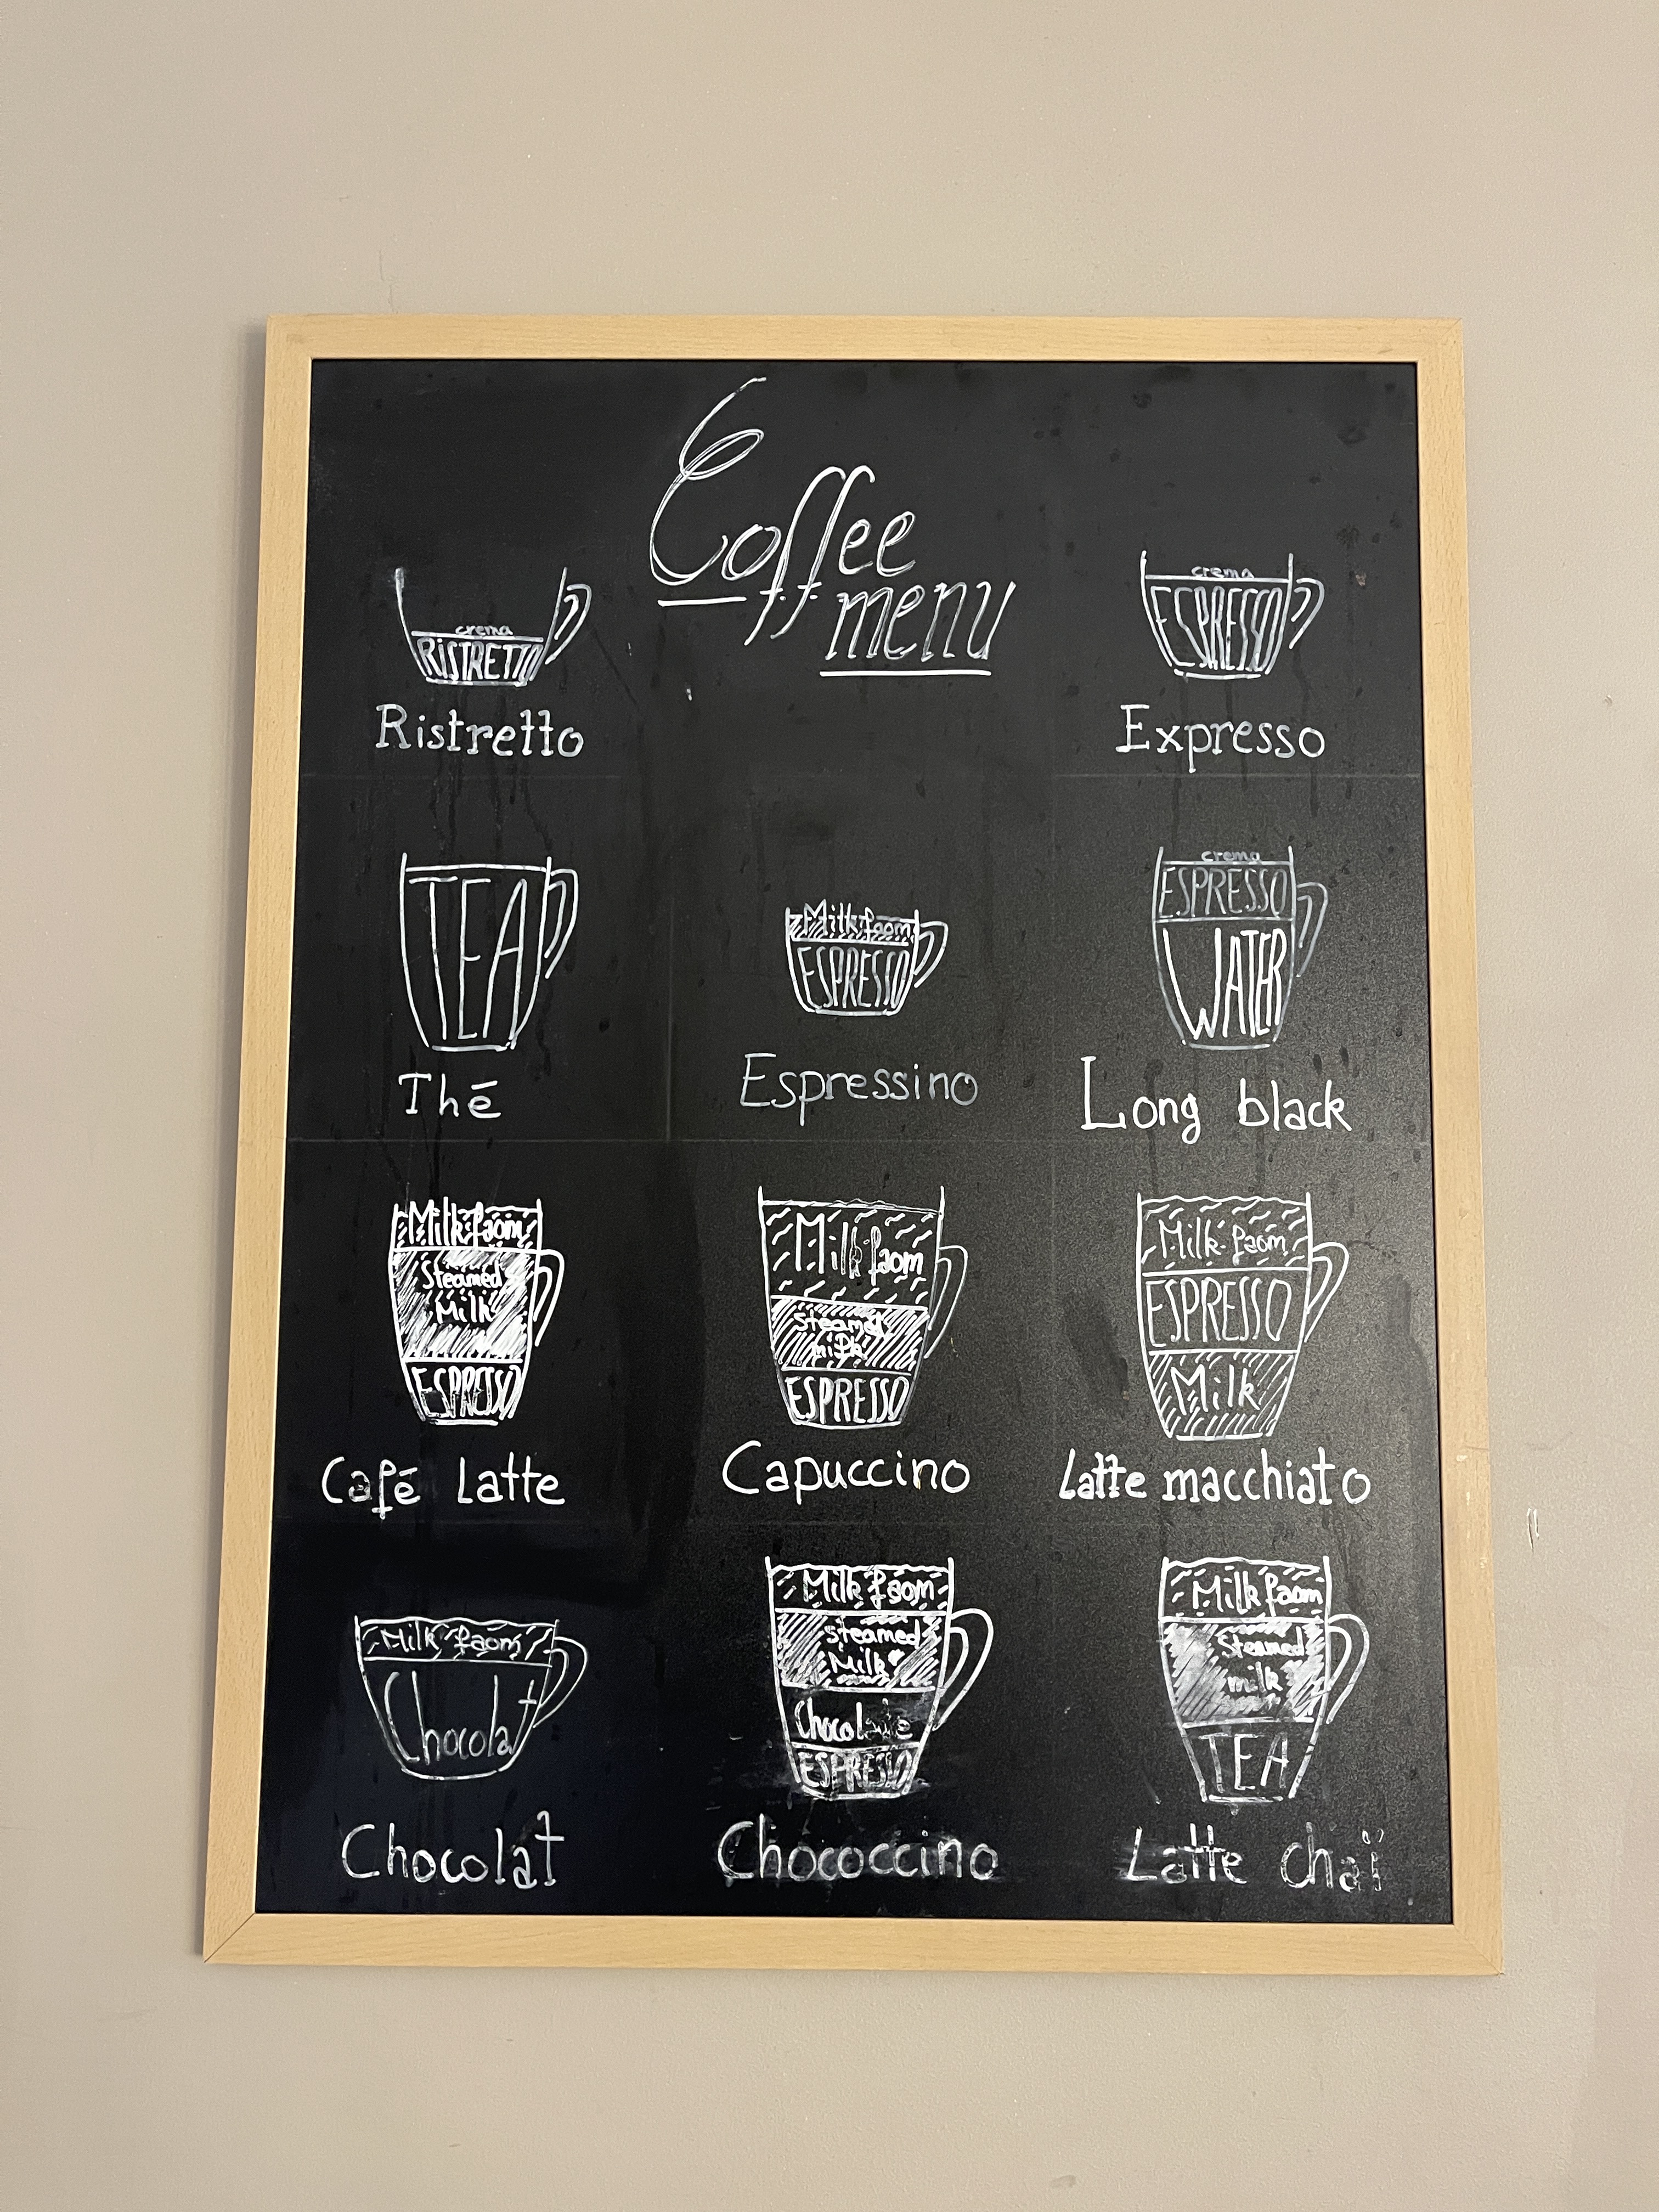 Coffee
menu
crema
RISTRETTO
Ristretto
crema
ESPRESSO
Expresso
TEA
Thé
Milk faom
ESPRESSO
Espressino
crema
ESPRESSO
WATER
Long black
Milk faom
Steamed
Milk
ESPRESSO
Café Latte
Milk faom
Steamed
milk
ESPRESSO
Capuccino
Milk faom
ESPRESSO
Milk
Latte macchiato
Milk faom
Chocolat
Chocolat
Milk faom
steamed
Milk
ESPRESSO
Chococcino
Milk faom
Steamed
milk
TEA
Latte chaï